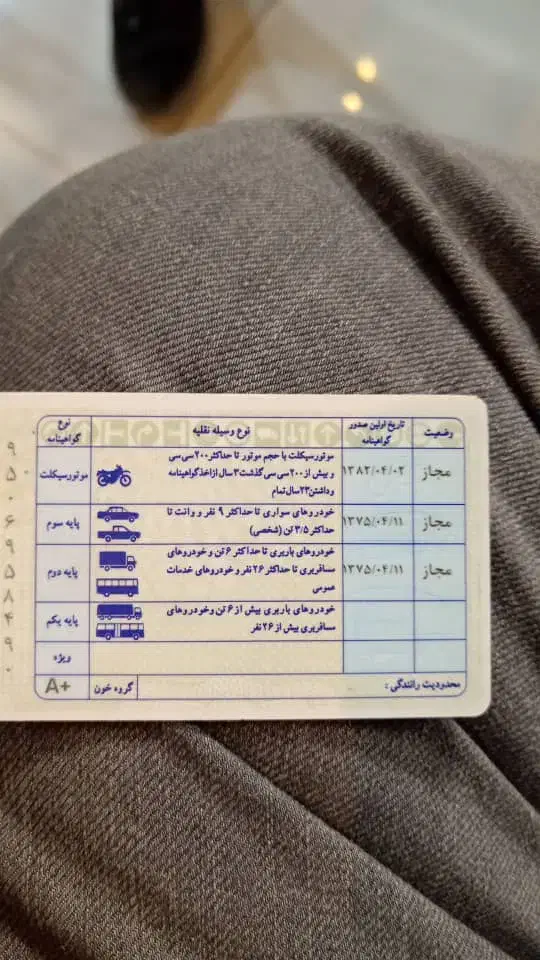 وضعیت
تاریخ اولین صدور
گواهینامه
نوع وسیله نقلیه
نوع
گواهینامه
مجاز
۱۳۸۲/۰۴/۰۲
موتورسیکلت با حجم موتور تا حداکثر ۲۰۰ سی سی
و بیش از ۲۰۰ سی سی گذشت ۳ سال از اخذ گواهینامه
و داشتن ۲۳ سال تمام
موتورسیکلت
مجاز
۱۳۷۵/۰۴/۱۱
خودروهای سواری تا حداکثر ۹ نفر و وانت تا
حداکثر ۳/۵ تن (شخصی)
پایه سوم
مجاز
۱۳۷۵/۰۴/۱۱
خودروهای باربری تا حداکثر ۶ تن و خودروهای
مسافربری تا حداکثر ۲۶ نفر و خودروهای خدمات
عمومی
پایه دوم
خودروهای باربری بیش از ۶ تن و خودروهای
مسافربری بیش از ۲۶ نفر
پایه یکم
ویژه
محدودیت رانندگی :
گروه خون
A+
۹
۵
۰
۶
۹
۵
۸
۴
۹
۰